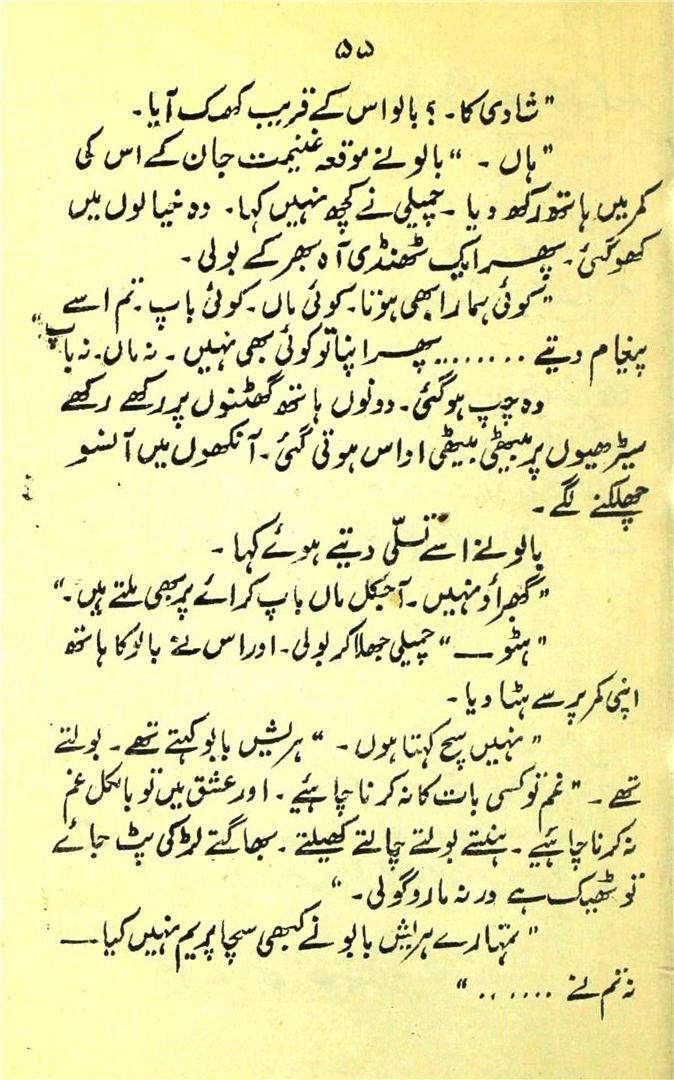 ۵۵
"شادی کا۔ ؟ بالو اس کے قریب کھسک آیا۔
"ہاں ۔ " بالو نے موقعہ غنیمت جان کے اس کی
کمر میں ہاتھ رکھ دیا ۔ چمپلی نے کچھ نہیں کہا۔ وہ خیالوں میں
کھو گئی ۔ پھر ایک ٹھنڈی آہ بھر کے بولی ۔
"کوئی ہمارا بھی ہوتا۔ کوئی ماں۔ کوئی باپ ۔ تم اسے
پیغام دیتے ....... پھر اپنا تو کوئی بھی نہیں ۔ نہ ماں۔ نہ باپ"
وہ چپ ہو گئی ۔ دونوں ہاتھ گھٹنوں پر رکھے رکھے
سیڑھیوں پر بیٹھی بیٹھی اداس ہوتی گئی ۔ آنکھوں میں آنسو
چھلکنے لگے ۔
بالو نے اسے تسلّی دیتے ہوئے کہا ۔
"گھبراؤ نہیں ۔ آجکل ماں باپ کرائے پر بھی ملتے ہیں ۔"
"ہٹو ــــ " چمپلی جھلا کر بولی ۔ اور اس نے بالو کا ہاتھ
اپنی کمر پر سے ہٹا دیا ۔
"نہیں سچ کہتا ہوں ۔ " ہریش بابو کہتے تھے ۔ بولتے
تھے ۔ "غم تو کسی بات کا نہ کرنا چاہئیے ۔ اور عشق میں تو بالکل غم
نہ کرنا چاہئیے ۔ ہنستے بولتے چالتے کھیلتے ۔ بھاگتے لڑکی پٹ جائے
تو ٹھیک ہے ورنہ مارو گولی ۔ "
"تمہارے ہریش بابو نے کبھی سچا پریم نہیں کیا ـــ
نہ تم نے ...... "